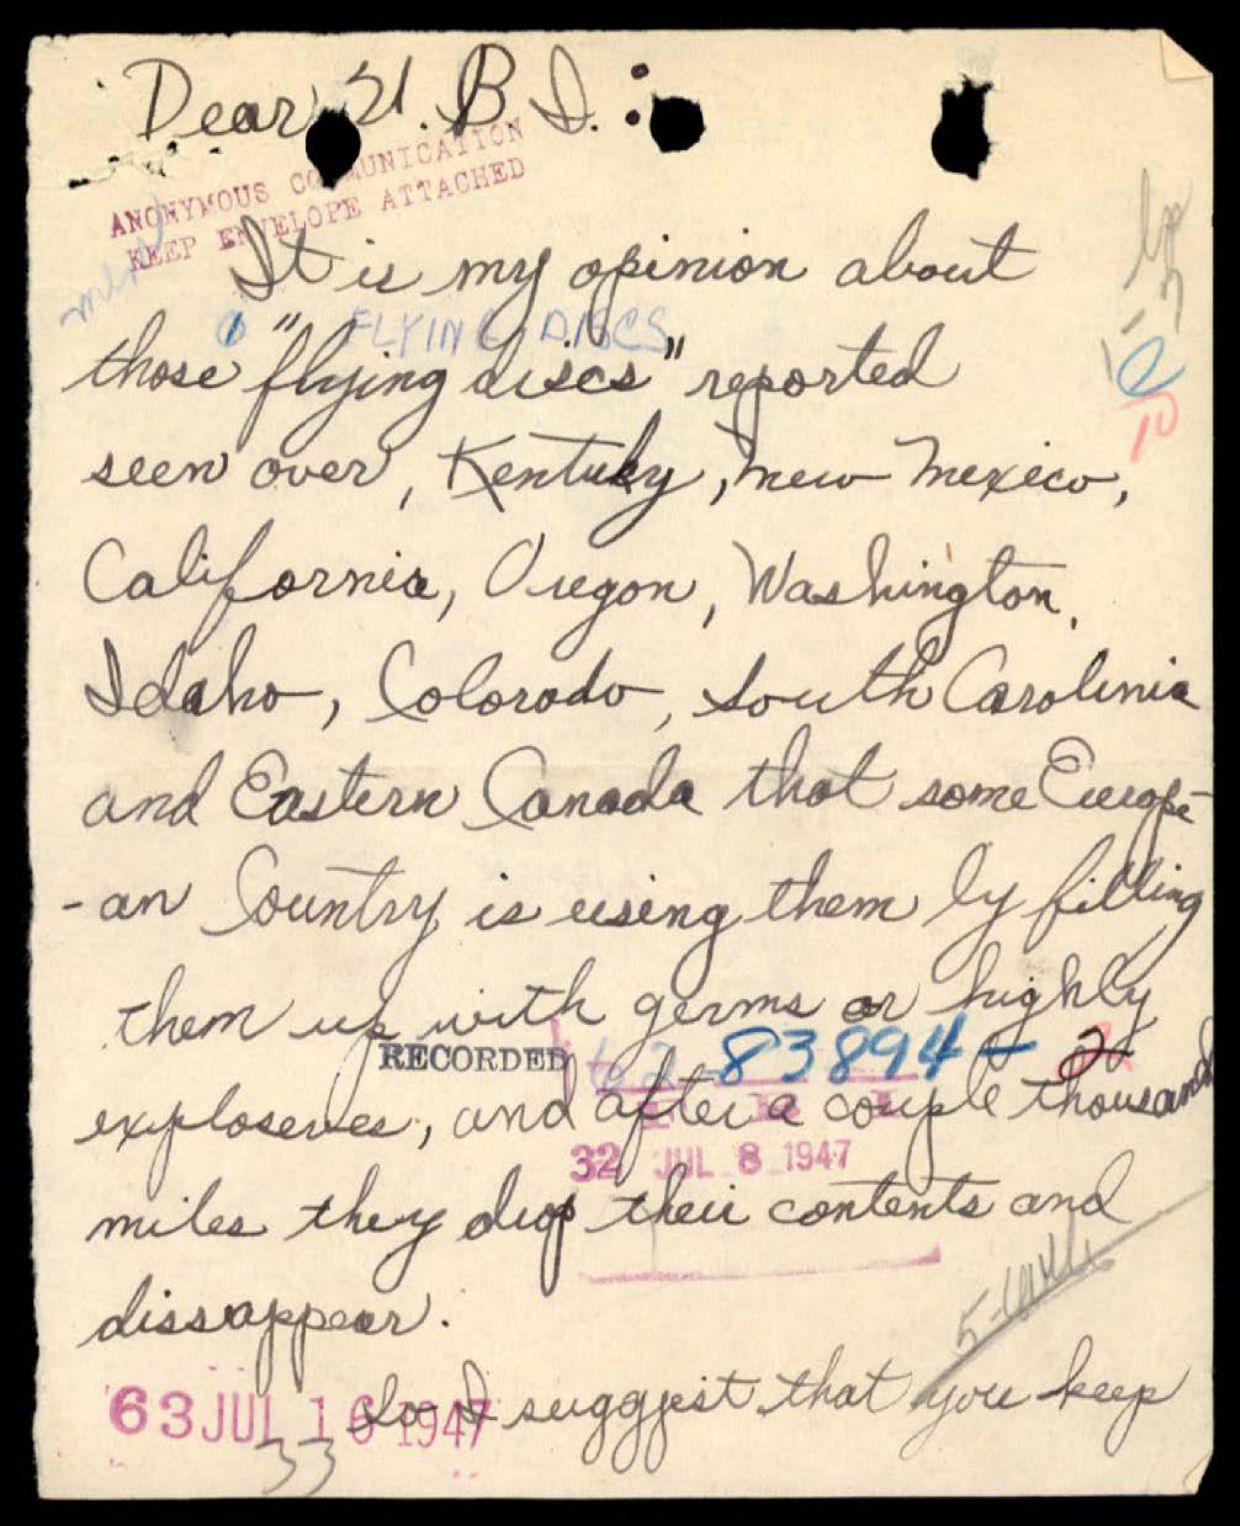 Dear F. B. I. :
ANONYMOUS COMMUNICATION
KEEP ENVELOPE ATTACHED
It is my opinion about
FLYING DISCS
those "flying discs" reported
seen over, Kentuky, new mexico,
California, Oregon, Washington,
Idaho, Colorado, South Carolinia
and Eastern Canada that some Europe-
-an Country is using them by filling
them up with germs or highly
RECORDED
62-83894-2
exploseves, and after a couple thousand
32 JUL 8 1947
miles they drop their contents and
dissappear.
So I suggest that you keep
63 JUL 16 1947
33